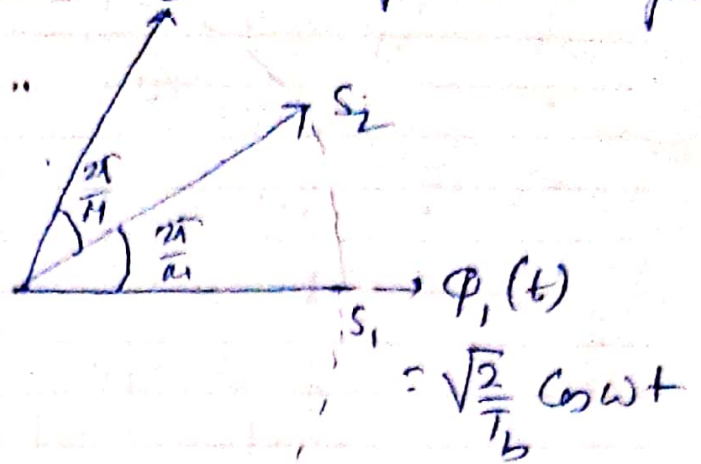 S₂
2π/M
2π/M
S₁ → φ₁(t)
= √(2/T_b) Cos ωt